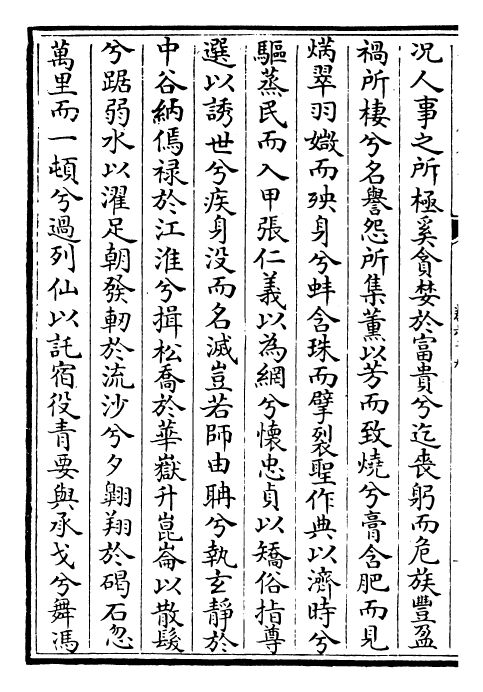 况人事之所極奚貪婪於富貴兮迄喪躬而危族豐盈
禍所棲兮名譽怨所集薰以芳而致燒兮膏含肥而見
㷄翠羽媺而殃身兮蚌含珠而擘裂聖作典以濟時兮
驅蒸民而入甲張仁義以為網兮懷忠貞以矯俗指尊
選以誘世兮疾身没而名滅豈若師由聃兮執玄靜於
中谷納傿禄於江淮兮揖松喬於華嶽升崑崙以散髮
兮踞弱水以濯足朝發軔於流沙兮夕翺翔於碣石忽
萬里而一頓兮過列仙以託宿役青要與承戈兮舞馮